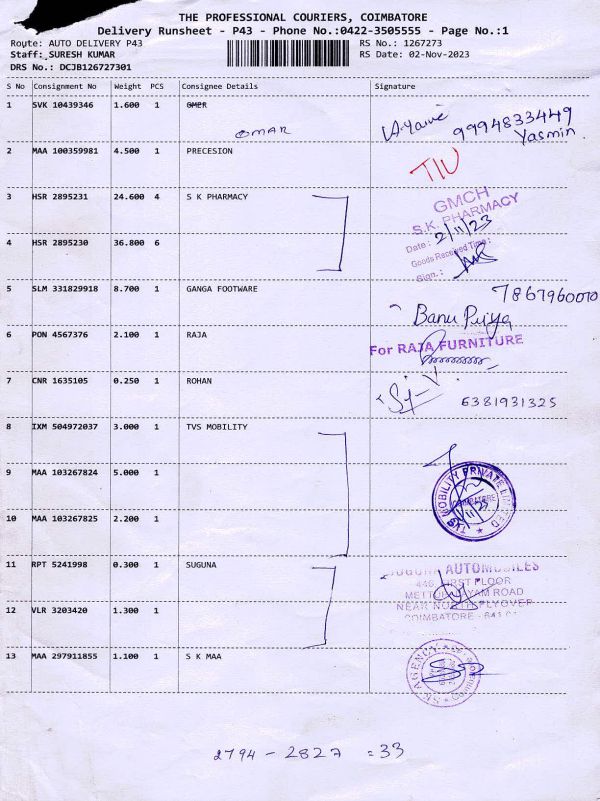 THE PROFESSIONAL COURIERS, COIMBATORE
Delivery Runsheet - P43 - Phone No.:0422-3505555 - Page No.:1
Route: AUTO DELIVERY P43 RS No.: 1267273
Staff: SURESH KUMAR RS Date: 02-Nov-2023
DRS No.: DCJB126727301
S No Consignment No Weight PCS Consignee Details Signature
1 SVK 10439346 1.600 1 OMER
OMAR 9994833449
Yasmin
2 MAA 100359981 4.500 1 PRECESION
TIU
3 HSR 2895231 24.600 4 S K PHARMACY
GMCH
S.K. PHARMACY
Date: 2/11/23
4 HSR 2895230 36.800 6
Goods Received Time:
Sign.:
5 SLM 331829918 8.700 1 GANGA FOOTWARE
7867960070
Banu Priya
6 PON 4567376 2.100 1 RAJA
For RAJA FURNITURE
7 CNR 1635105 0.250 1 ROHAN
6381931325
8 IXM 504972037 3.000 1 TVS MOBILITY
9 MAA 103267824 5.000 1
TVS MOBILITY PRIVATE LIMITED
COIMBATORE
10 MAA 103267825 2.200 1
11 RPT 5241998 0.300 1 SUGUNA
SUGUNA AUTOMOBILES
446, FIRST FLOOR
METTUPALAYAM ROAD
12 VLR 3203420 1.300 1
NEAR NORTH FLYOVER
COIMBATORE - 641
13 MAA 297911855 1.100 1 S K MAA
S.K AGENCY
2794 - 2827 = 33